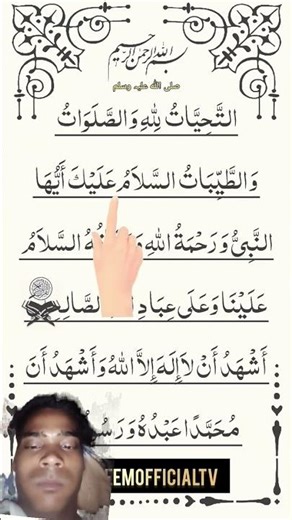 بسم الله الرحمن الرحيم
صلى الله عليه وسلم
التَّحِيَّاتُ لِلّٰهِ وَالصَّلَوَاتُ
وَالطَّيِّبَاتُ السَّلَامُ عَلَيْكَ أَيُّهَا
النَّبِيُّ وَرَحْمَةُ اللهِ السَّلَامُ
عَلَيْنَا وَعَلَى
أَشْهَدُ أَنْ لَا إِلَهَ إِلَّا اللهُ وَأَشْهَدُ أَنَ
مُحَمَّدًا عَبْدُهُ
EEMOFFICIALTV